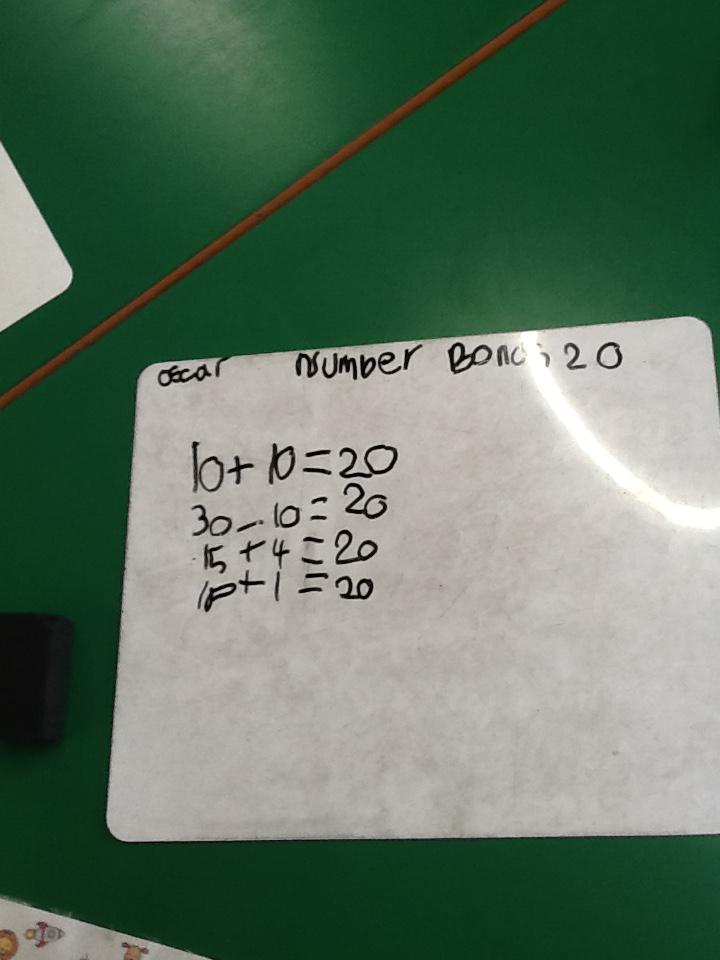 oscar Number Bonds 20
10 + 10 = 20
30 - 10 = 20
15 + 4 = 20
+ 1 = 20